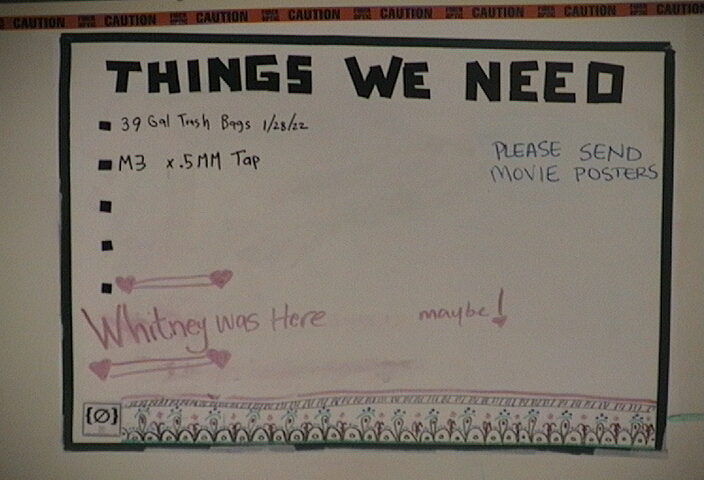 CAUTION CAUTION CAUTION CAUTION CAUTION CAUTION CAUTION CAUTION
THINGS WE NEED
39 Gal Trash Bags 1/28/22
M3 x .5MM Tap
PLEASE SEND
MOVIE POSTERS
Whitney was Here maybe!
{Ø}